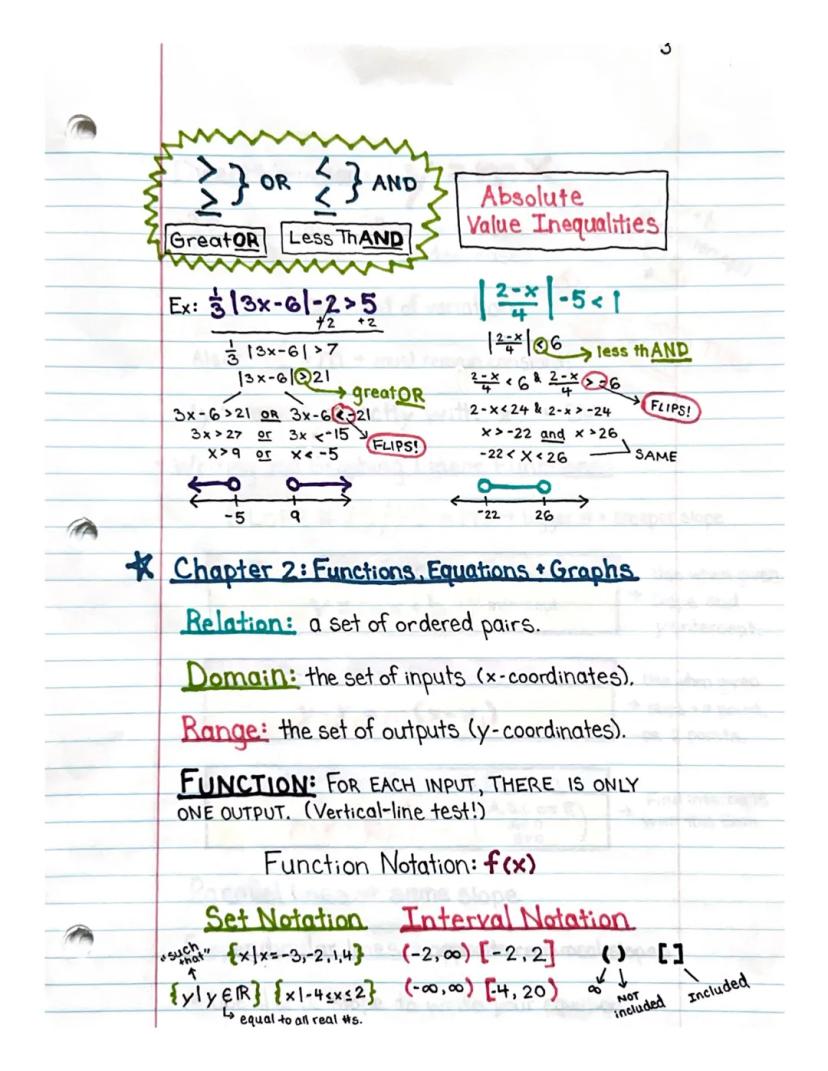 3
> } OR < } AND
≥ ≤
GreatOR Less ThAND
Absolute
Value Inequalities
Ex: 1/3 |3x-6|-2>5
+2 +2
1/3 |3x-6|>7
|3x-6|>21
greatOR
3x-6>21 OR 3x-6<-21
3x>27 or 3x<-15
FLIPS!
x>9 or x<-5
-5 9
|2-x/4|-5<1
|2-x/4|<6
less thAND
2-x/4<6 & 2-x/4>-6
FLIPS!
2-x<24 & 2-x>-24
x>-22 and x>26
-22<x<26 SAME
-22 26
Chapter 2: Functions, Equations + Graphs
Relation: a set of ordered pairs.
Domain: the set of inputs (x-coordinates).
Range: the set of outputs (y-coordinates).
FUNCTION: FOR EACH INPUT, THERE IS ONLY
ONE OUTPUT. (Vertical-line test!)
Function Notation: f(x)
Set Notation Interval Notation
"such that" {x|x=-3,-2,1,4} (-2,∞) [-2,2] ( ) [ ]
{y|y∈ℝ} {x|-4≤x≤2} (-∞,∞) [-4,20) ∞ NOT included Included
equal to all real #s.